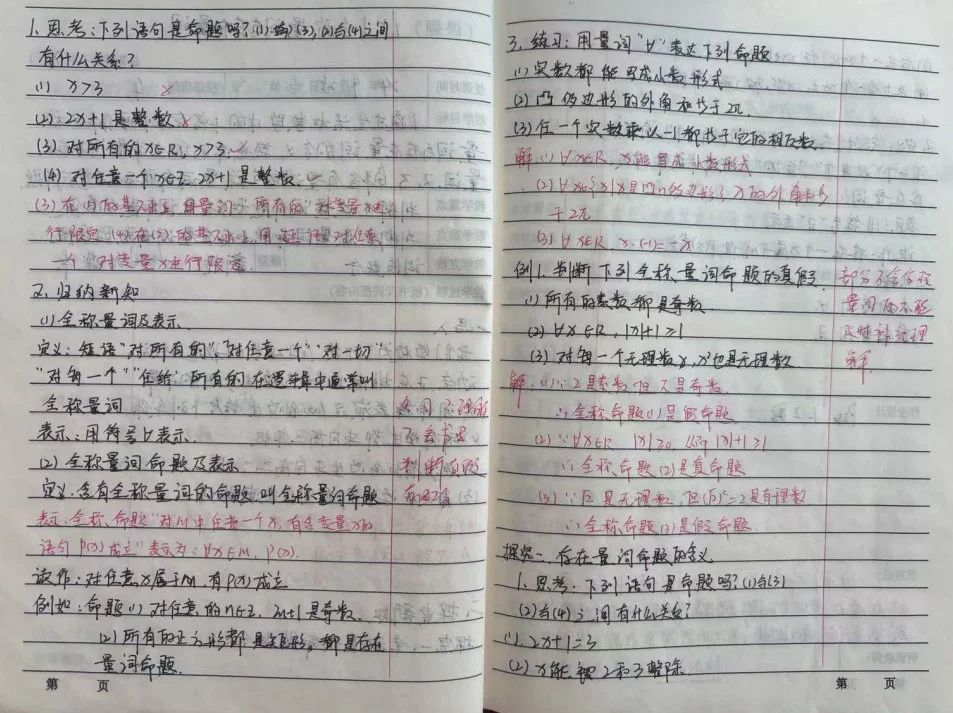 1. 思考：下列语句是命题吗？(1)与(3), (2)与(4)之间
有什么关系？
(1) x>3 ×
(2) 2x+1是整数 ×
(3) 对所有的x∈R, x>3.
(4) 对任意一个x∈Z, 2x+1是整数.
(3) 在(1)的基础上, 用量词"所有的"对变量x进
行限定. (4)在(2)的基础上, 用短语"对任意
一个"对变量x进行限定
2. 归纳新知
(1) 全称量词及表示
定义：短语"对所有的"、"对任意一个""对一切"
"对每一个""任给"所有的 在逻辑中通常叫
全称量词
表示：用符号∀表示.
不会书写
(2) 全称量词命题及表示
判断真假
定义：含有全称量词的命题, 叫全称量词命题
表示：全称命题"对M中任意一个x, 有含变量x的
语句P(x)成立"表示为：∀x∈M, P(x).
读作：对任意x属于M, 有P(x)成立
例如：命题(1) 对任意的n∈Z, 2n+1是奇数.
(2) 所有的正方形都是矩形, 都是存在
量词命题.
第 页
3. 练习：用量词"∀"表达下列命题
(1) 实数都能写成小数形式
(2) 凸多边形的外角和等于2π
(3) 任一个实数乘以-1都等于它的相反数.
解：(1) ∀x∈R, x能写成小数形式
(2) ∀x∈{x|x是凸n边形}, x的外角和等
于2π
(3) ∀x∈R, x·(-1)=-x
例1. 判断下列全称量词命题的真假
(1) 所有的素数都是奇数
(2) ∀x∈R, |x|+1≥1
(3) 对每一个无理数x, x²也是无理数
解：(1) ∵2是素数, 但不是奇数
∴全称命题(1)是假命题
(2) ∵∀x∈R |x|≥0, 从而|x|+1≥1
∴全称命题(2)是真命题
(3) ∵√2是无理数, 但(√2)²=2是有理数
∴全称命题(3)是假命题
探究一 存在量词命题的含义
1. 思考：下列语句是命题吗？(1)与(3)
(2)与(4)之间有什么关系？
(1) 2x+1=3
(2) x能被2和3整除.
第 页